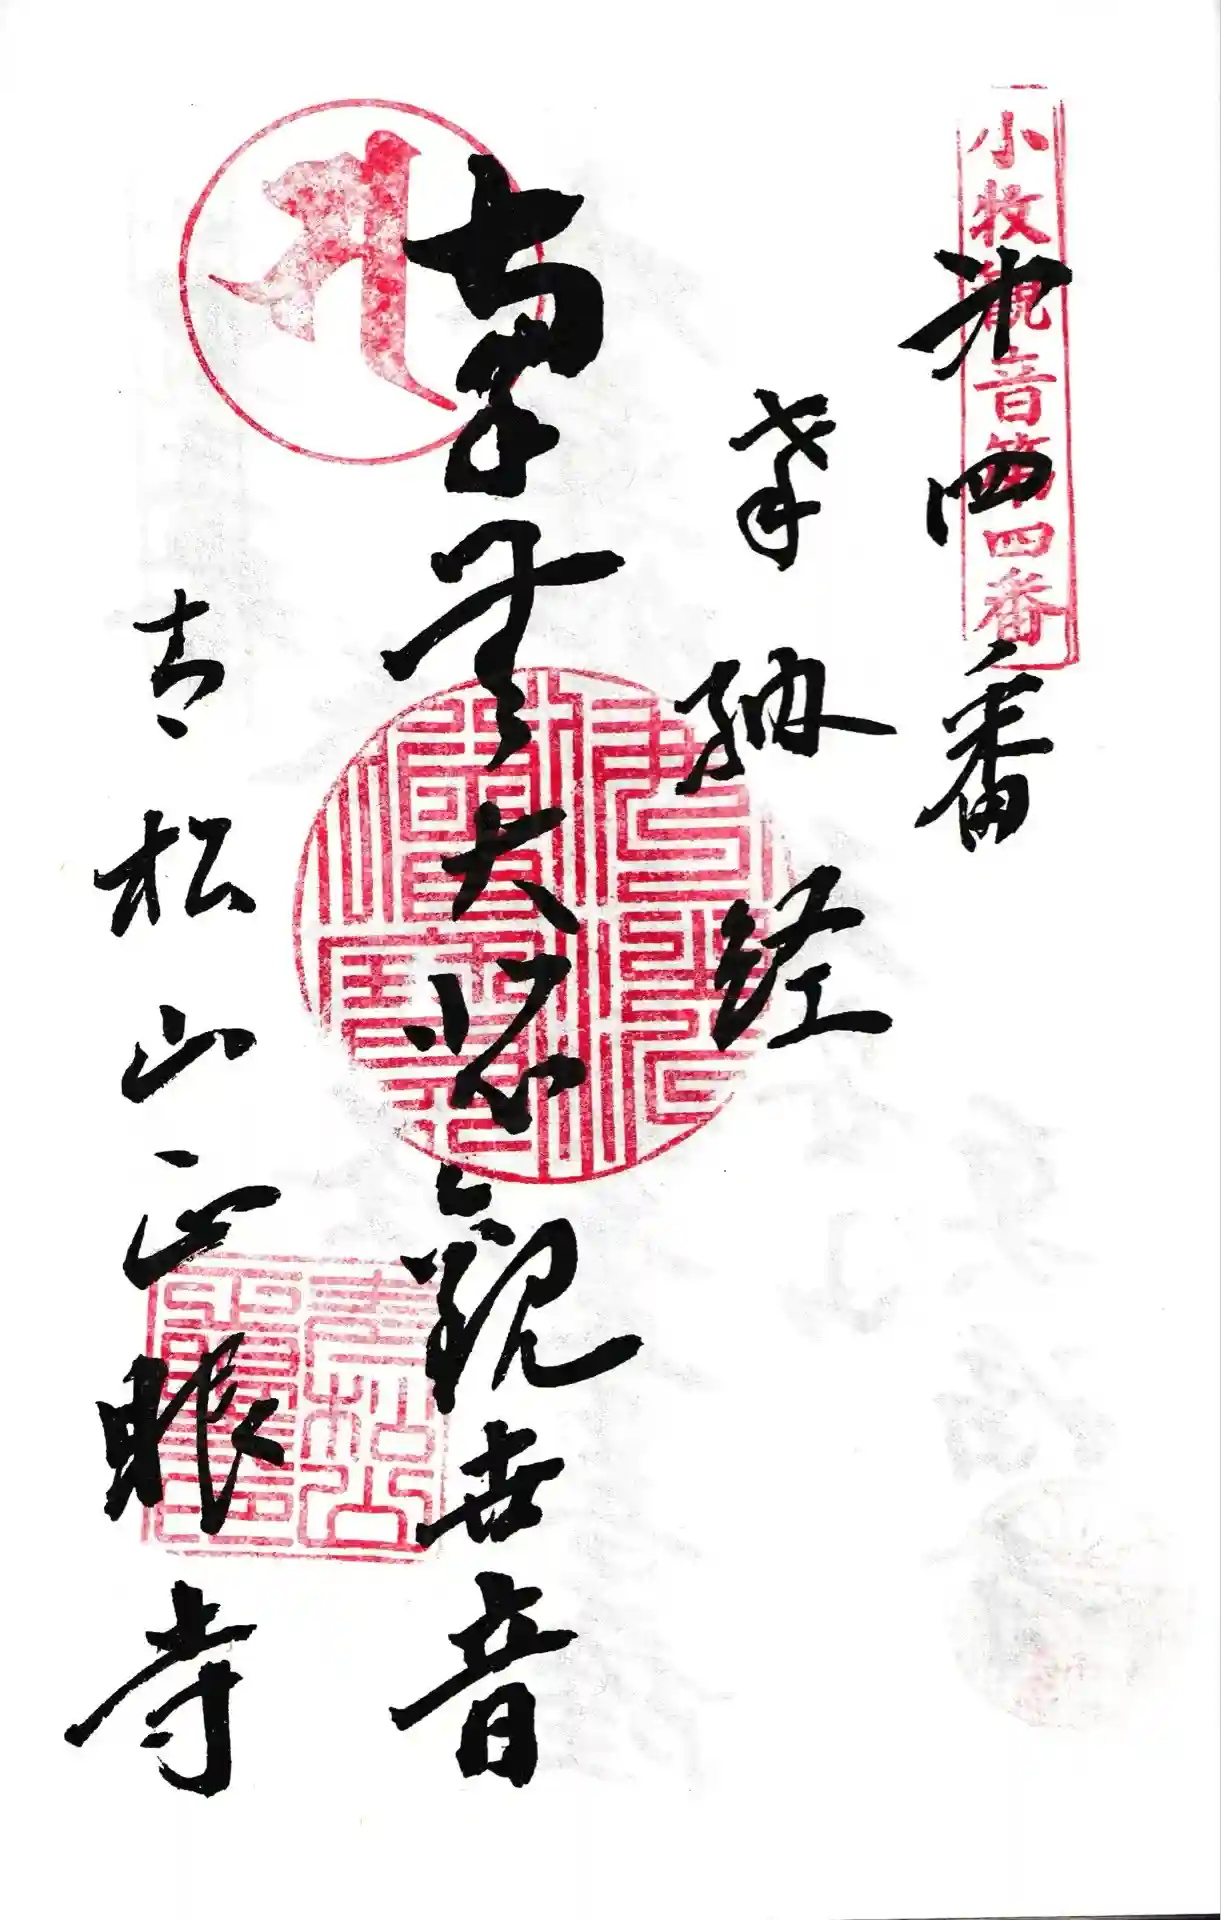 小牧觀音第四番
第四番
奉納経
南無大悲観世音
青松山正眼寺